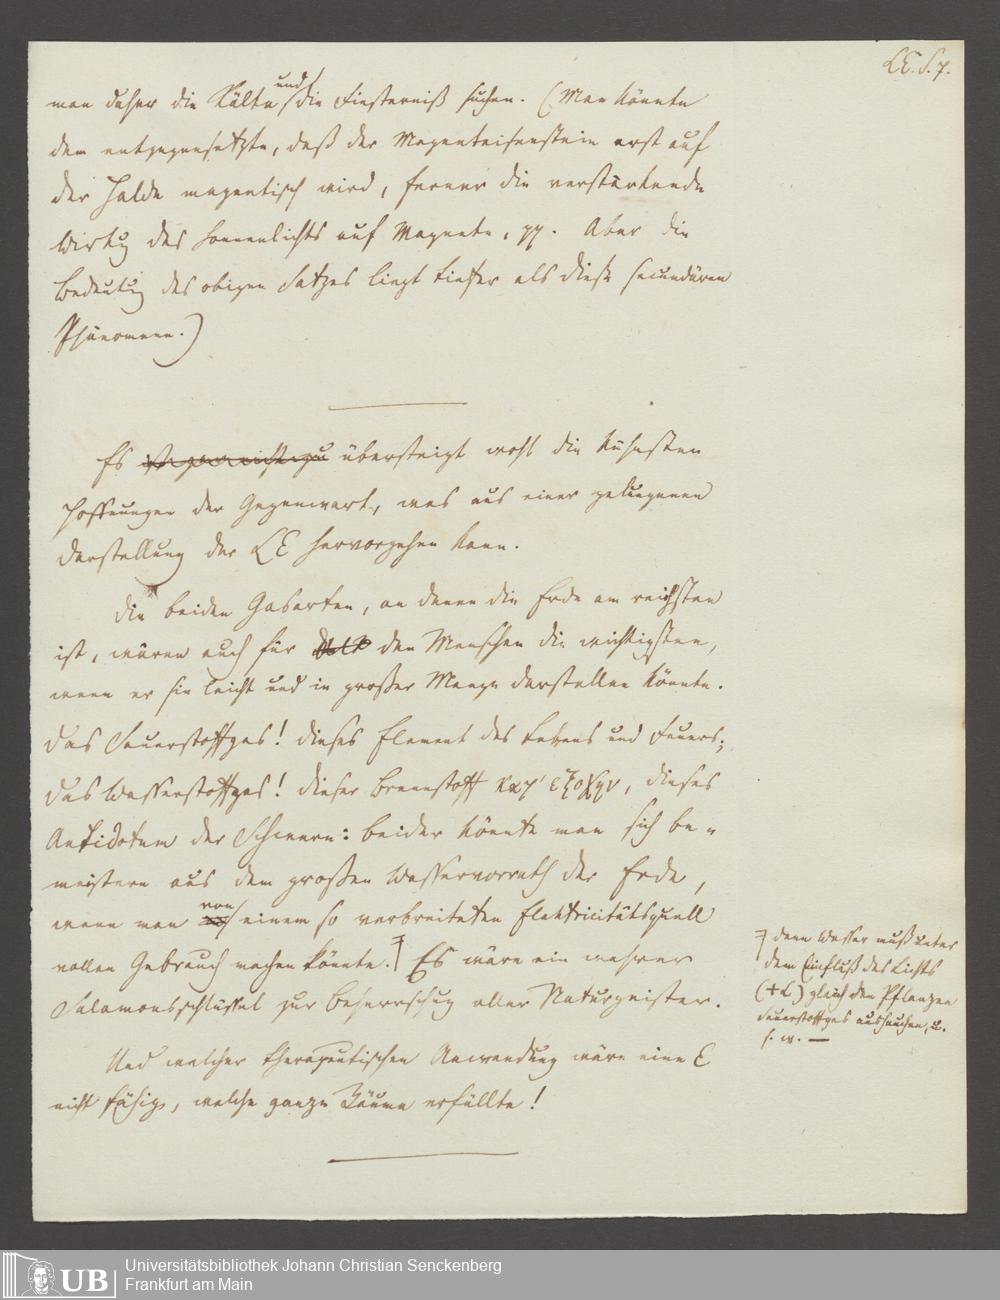 LE. S. 7.
man daher die Kälte und die Finsterniß suchen. (Man könnte
dem entgegensetzte, daß der Magneteisenstein erst auf
der Halde magnetisch wird, ferner die verstärkende
Wirkg des Sonnenlichts auf Magnete, pp. Aber die
Bedeutug des obigen Satzes liegt tiefer als diese secundären
Phänomene.)
Es übersteigt wohl die kühnsten
Hoffnungen der Gegenwart, was aus einer gelungenen
Darstellung der LE hervorgehen kann.
Die beiden Gasarten, an denen die Erde am reichsten
ist, wären auch für den Menschen die wichtigsten,
wenn er sie leicht und in großer Menge darstellen könnte.
Das Sauerstoffgas! dieses Element des Lebens und Feuers;
das Wasserstoffgas! dieser Brennstoff κατ' εξοχην, dieses
Antidotum der Schwere: beider könnte man sich be-
meistern aus dem großen Wasservorrath der Erde,
wenn man von einem so verbreiteten Elektricitätsquell
vollen Gebrauch machen könnte. Es wäre ein wahrer
Salamonsschlüssel zur Beherrschug aller Naturgeister.
Und welcher therapeutischen Anwendung wäre eine E
nicht fähig, welche ganze Räume erfüllte!
denn Wasser muß unter
dem Einfluß des Lichts
(+L) gleich den Pflanzen
Sauerstoffgas aushauchen, u.
s. w. —
Universitätsbibliothek Johann Christian Senckenberg
UB Frankfurt am Main